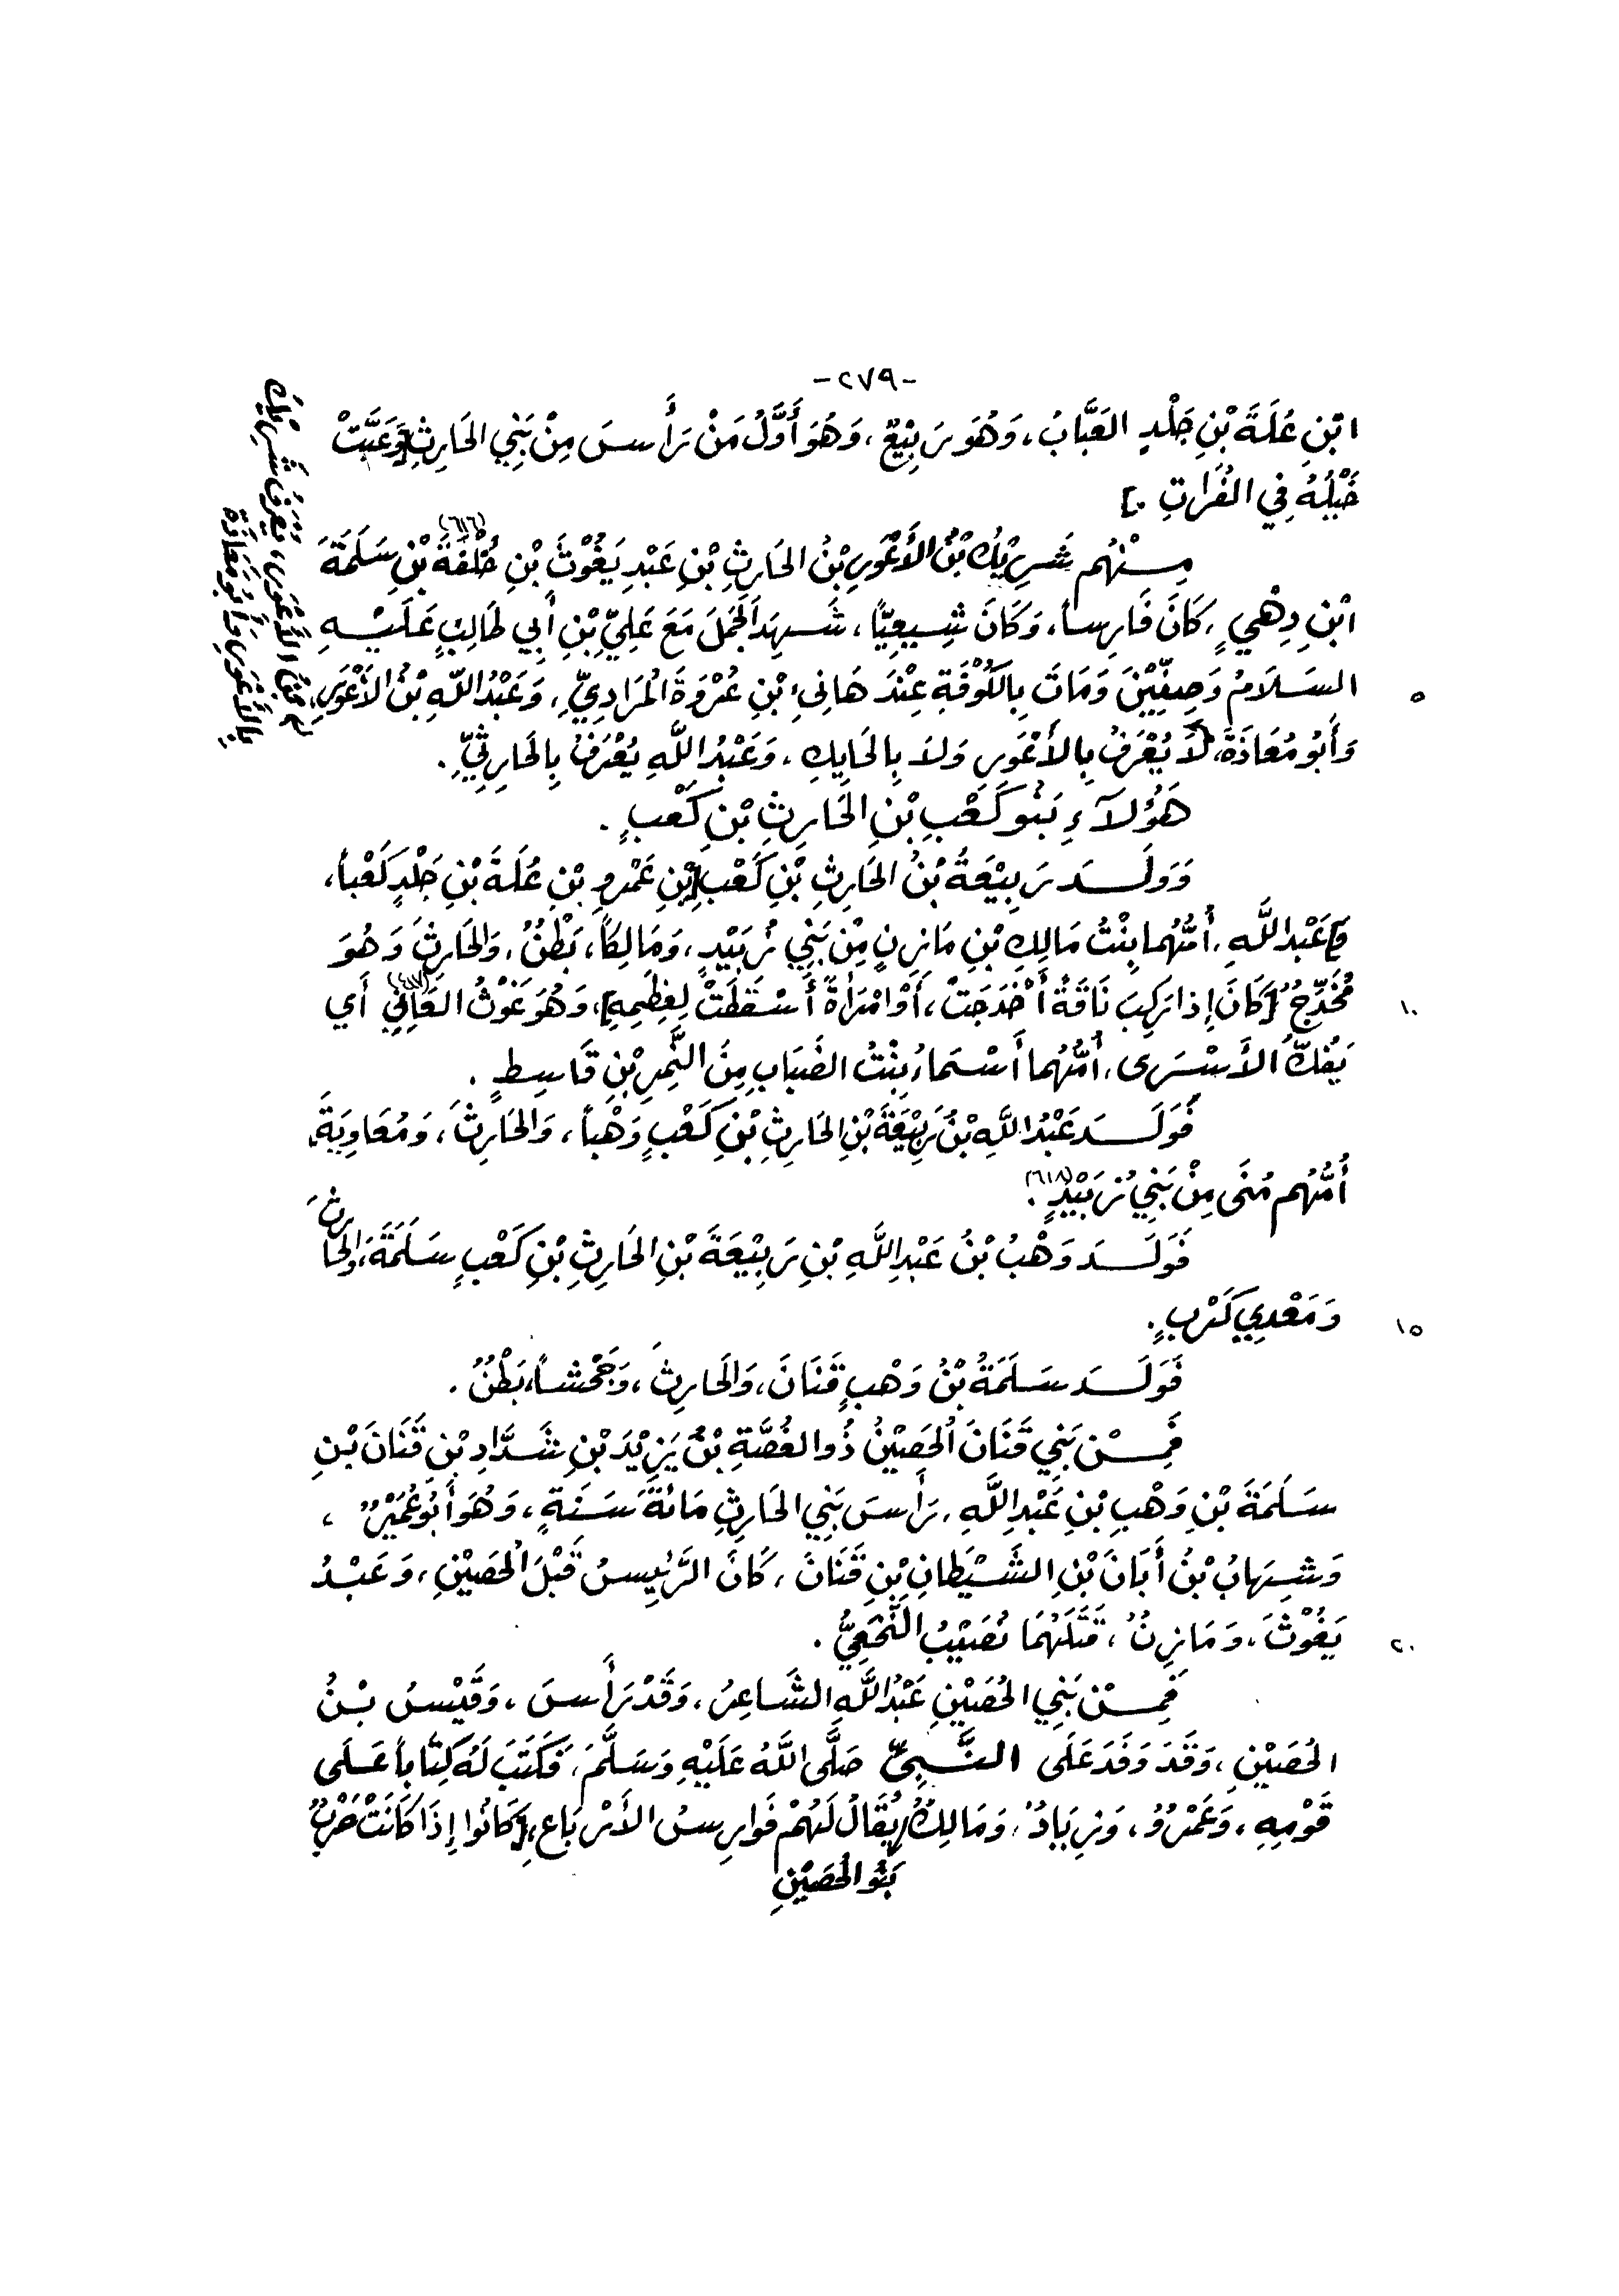 -٢٧٩-
ابْنِ عُلَةَ بْنِ جَلْدٍ العَبَّابُ، وَهُوَ رَبِيْعٌ، وَهُوَ أَوَّلُ مَنْ رَأَسَ مِنْ بَنِي الحَارِثِ [وَعَبَّتْ
خَيْلُهُ فِي الفُرَاتِ.]
مِنْهُم شَرِيْكُ بْنُ الأَعْوَرِ بْنُ الحَارِثِ بْنِ عَبْدِ يَغُوْثَ بْنِ خُلْفَةَ (٦١٦) بْنِ سَلَمَةَ
ابْنِ دِهْيٍ، كَانَ فَارِساً، وَكَانَ شِيعِيّاً، شَهِدَ الجَمَلَ مَعَ عَلِيِّ بْنِ أَبِي طَالِبٍ عَلَيْهِ
السَلَامُ وَصِفِّيْنَ وَمَاتَ بِالكُوْفَةِ عِنْدَ هَانِىءِ بْنِ عُرْوَةَ المُرَادِيِّ، وَعَبْدُ اللّهِ بْنُ الأَعْوَرِ،
٥
وَأَبُو مُعَاذَةَ، لَا يُعْرَفُ بِالأَعْوَرِ وَلاَ بِالحَايِكِ، وَعَبْدُ اللَّهِ يُعْرَفُ بِالحَارِثِيِّ.
بْنُ الأَعْوَرِ، يُعْرَفُ شَرِيْكٌ
بِالأَعْوَرِ وَأَبُو مُعَاذَةَ
هَؤُلَآءِ بَنُو كَعْبِ بْنِ الحَارِثِ بْنِ كَعْبٍ.
وَوَلَدَ رَبِيْعَةُ بْنُ الحَارِثِ بْنِ كَعْبِ [بْنِ عَمْرِو بْنِ عُلَةَ بْنِ جَلْدٍ كَعْباً،
وَ] عَبْدَ اللَّهِ، أُمُّهُما بِنْتُ مَالِكِ بْنِ مَازِنٍ مِنْ بَنِي زُبَيْدٍ، وَمَالِكاً، بَطْنٌ، وَالحَارِثَ وَهُوَ
مُخَدِّجٌ [كَانَ إِذا رَكِبَ نَاقَةً أَخْدَجَتْ، أَوْ امْرَأةً أَسْقَطَتْ لِعِظَمِهِ]، وَهُوَ غَوْثُ العَانِي (٦١٧) أَي
١٠
يَفُكُّ الأَسْرَى، أُمُّهُما أَسْمَاءُ بِنْتُ الضَبَابِ مِنَ النَّمِرِ بْنِ قَاسِطٍ.
فَوَلَدَ عَبْدُ اللَّهِ بْنُ رَبِيْعَةَ بْنِ الحَارِثِ بْنِ كَعْبٍ وَهْباً، وَالحَارِثَ، وَمُعَاوِيَةَ،
أُمُّهُم مُنَى مِنْ بَنِي زُبَيْدٍ (٦١٨).
فَوَلَدَ وَهْبُ بْنُ عَبْدِ اللَّهِ بْنِ رَبِيْعَةَ بْنِ الحَارِثِ بْنِ كَعْبٍ سَلَمَةَ، وَالحَارِثَ
وَمَعْدِي كَرْبٍ.
١٥
فَوَلَدَ سَلَمَةُ بْنُ وَهْبٍ قَنَانَ، وَالحَارِثَ، وَجَحْشاً، بَطْنٌ.
فَمِنْ بَنِي قَنَانَ الحُصَيْنُ ذُو الغُصَّةِ بْنُ يَزِيْدَ بْنِ شَدَّادِ بْنِ قَنَانَ بْنِ
سَلَمَةَ بْنِ وَهْبِ بْنِ عَبْدِ اللَّهِ، رَأَسَ بَنِي الحَارِثِ مَائَةَ سَنَةٍ، وَهُوَ أَبُو عُمَيْرٍ،
وَشِهَابُ بْنُ أَبَانَ بْنِ الشَيْطَانِ بْنِ قَنَانَ، كَانَ الرَّئِيسُ قَبْلَ الحُصَيْنِ، وَعَبْدُ
يَغُوْثَ، وَمَازِنٌ، قَتَلَهُمَا نُصَيْبُ النَّخَعِيُّ.
٢٠
فَمِنْ بَنِي الحُصَيْنِ عَبْدُ اللَّهِ الشَاعِرُ، وَقَدْ رَأَسَ، وَقَيْسُ بْنُ
الحُصَيْنِ، وَقَدَ وَفَدَ عَلَى النَّبِيِّ صَلَّى اللَّهُ عَلَيْهِ وَسَلَّمَ، فَكَتَبَ لَهُ كِتَاباً عَلَى
قَوْمِهِ، وَعَمْرٌو، وَزِيَادٌ، وَمَالِكٌ [بَنُو الحُصَيْنِ] يُقَالُ لَهُمْ فَوارِسُ الأَرْبَاعِ، [كَانُوا إِذَا كَانَتْ حَرْبٌ